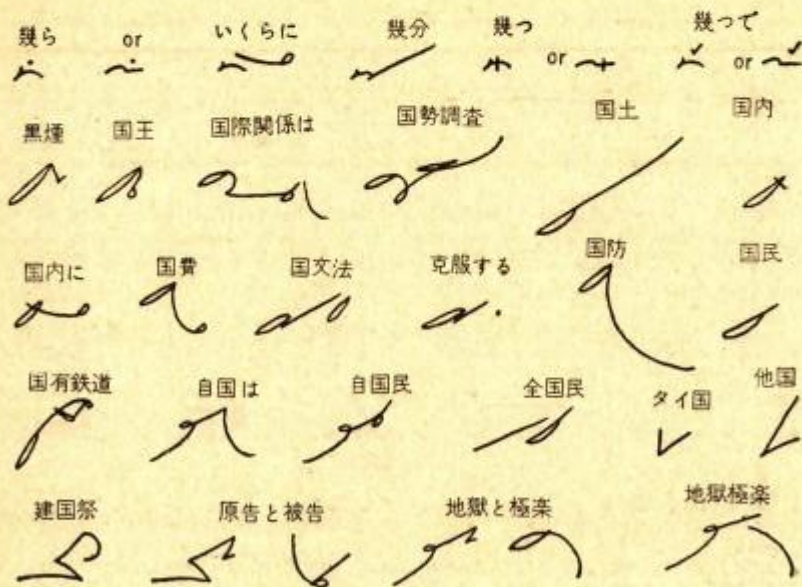 幾ら or いくらに 幾分 幾つ or 幾つで or
黒煙 国王 国際関係は 国勢調査 国土 国内
国内に 国費 国文法 克服する 国防 国民
国有鉄道 自国は 自国民 全国民 タイ国 他国
建国祭 原告と被告 地獄と極楽 地獄極楽